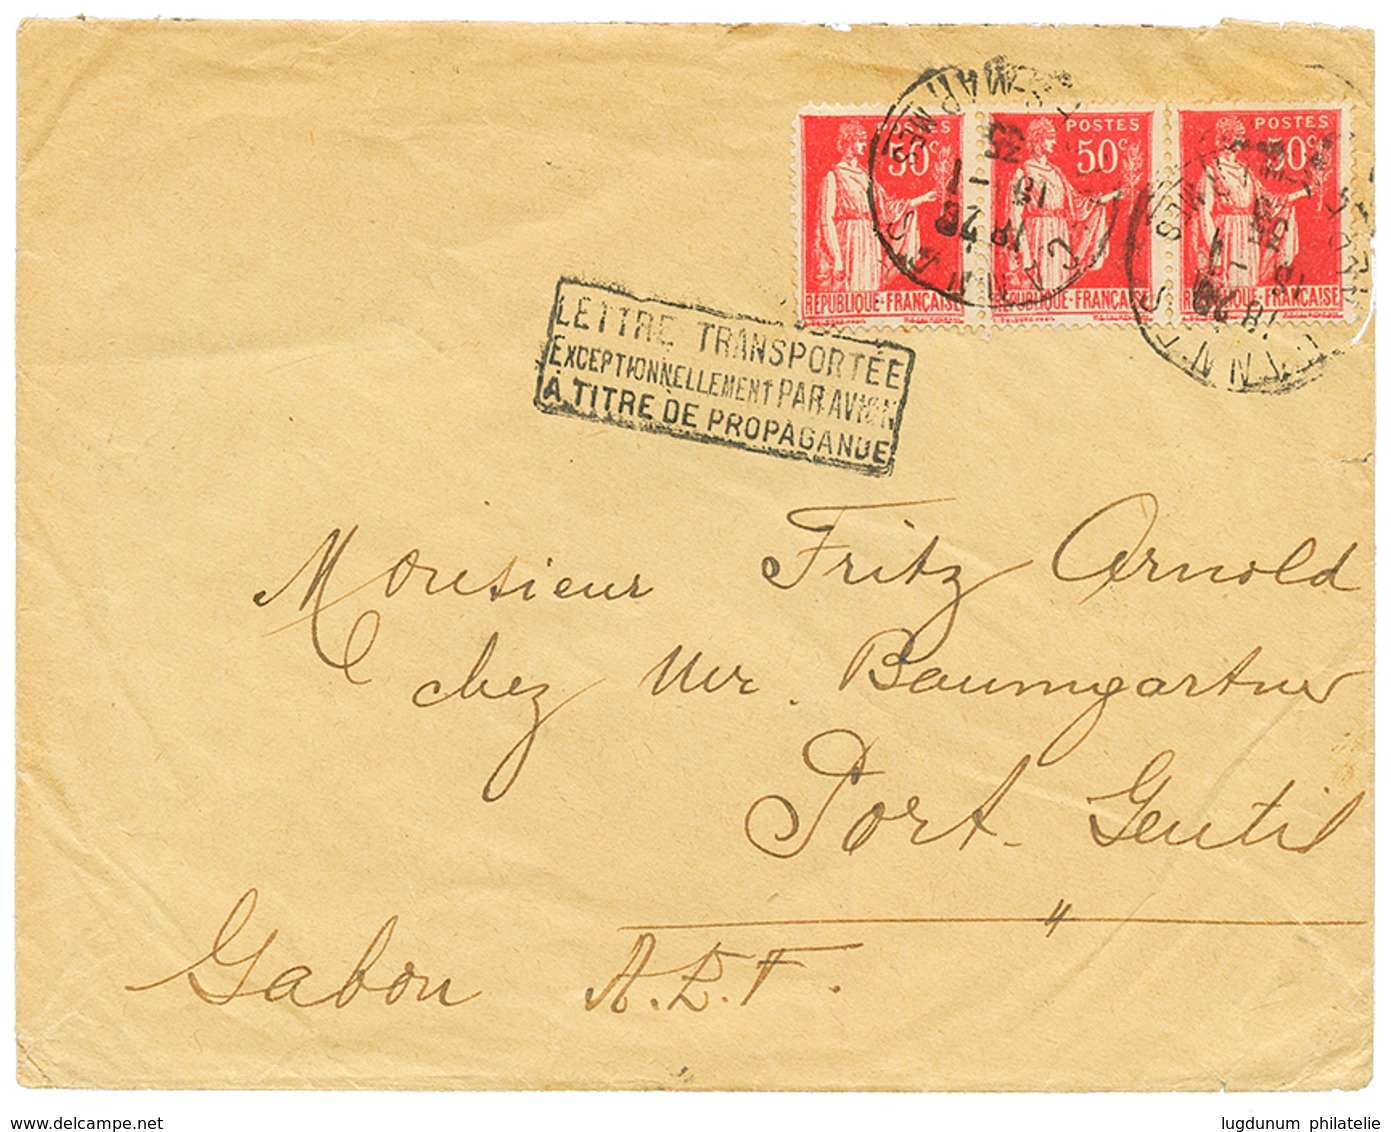 POSTES POSTES POSTES
50c 50c 50c
RÉPUBLIQUE-FRANÇAISE RÉPUBLIQUE-FRANÇAISE RÉPUBLIQUE-FRANÇAISE
CANNES
18 20
LETTRE TRANSPORTÉE
EXCEPTIONNELLEMENT PAR AVION
À TITRE DE PROPAGANDE
Monsieur Fritz Arnold
chez Mr. Baumgartner
Port-Gentil
Gabon A.E.F.
www.delcampe.net
lugdunum philatelie